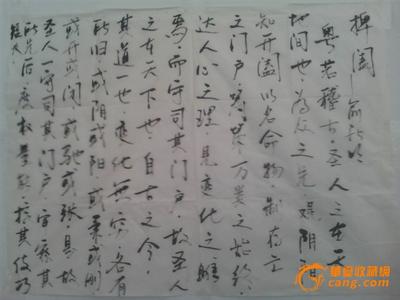 捭阖
粤若稽古圣人之在天
地间也为众之先观阴阳
开阖以名命物知存亡
之门户筹策万类之终始
达人心之理见变化之朕
焉而守司其门户故圣人
之在天下也自古之今
其道一也变化无穷各有
所归或阴或阳或柔或刚
或开或闭或驰或张是故
圣人一守司其门户审察其
所先后度权量能校其伎巧
短长
华夏收藏网